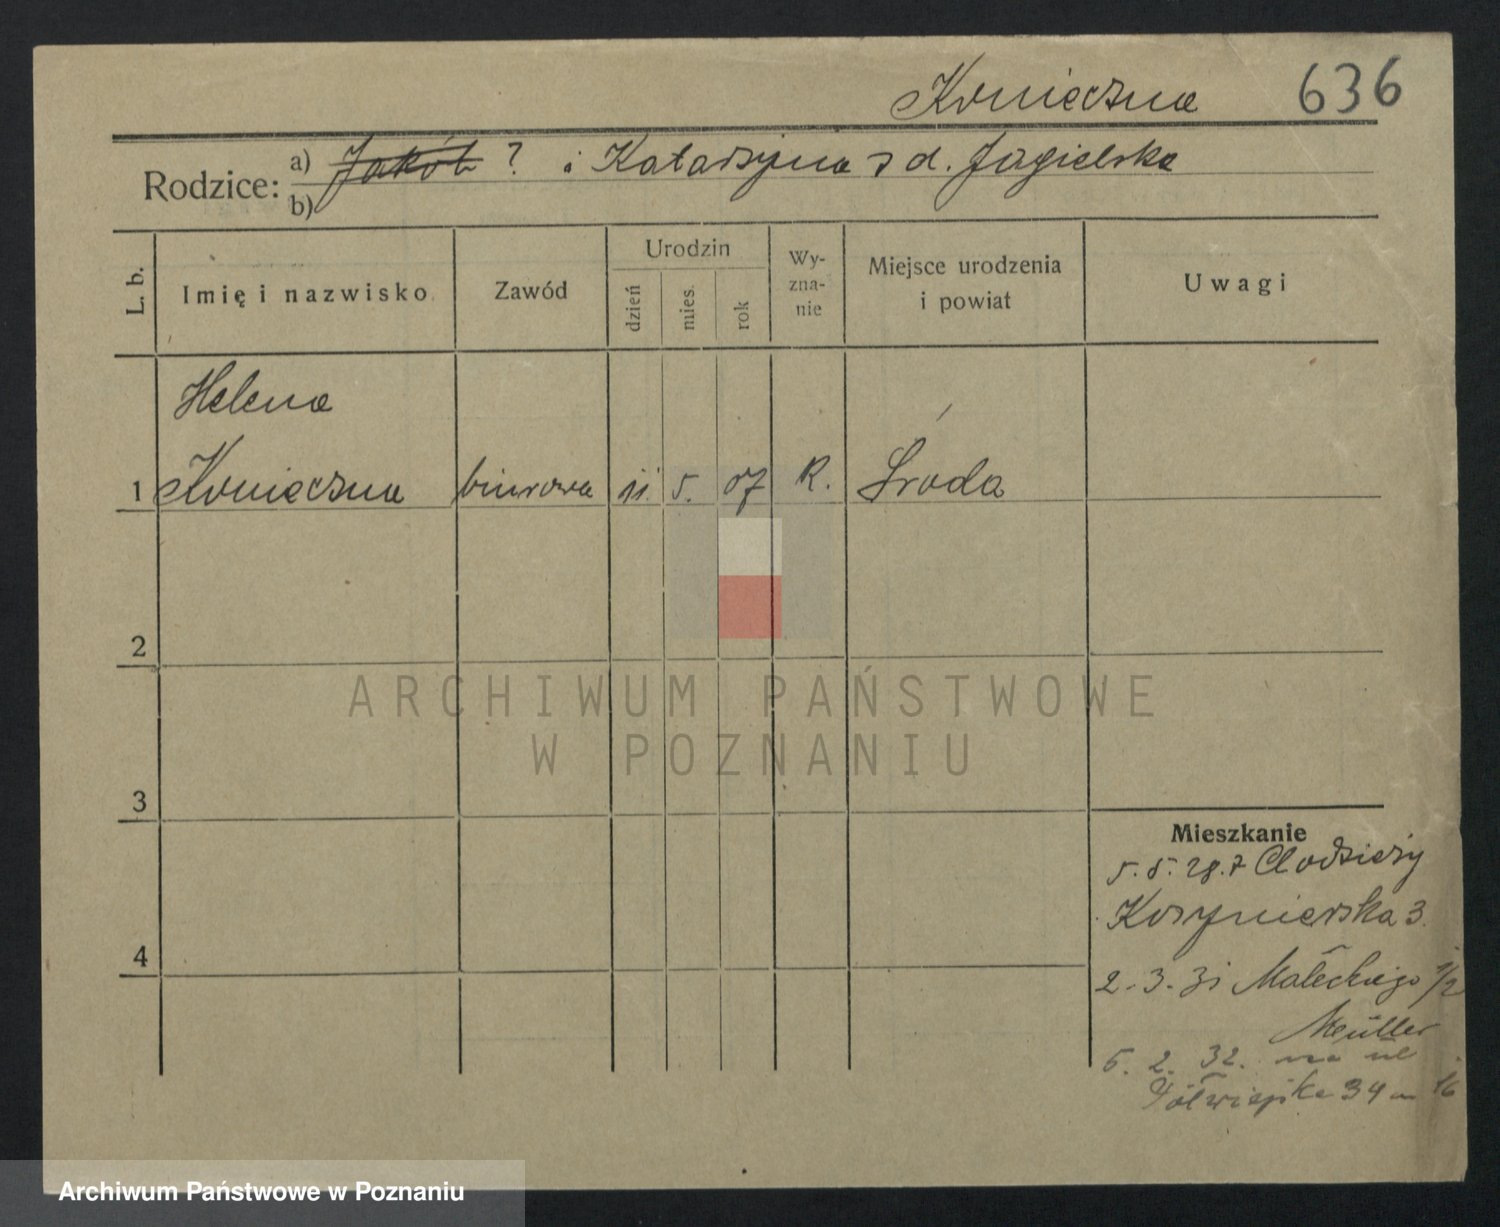 Konieczna 636
Rodzice: a) Jakób ? i Katarzyna z d. Jagielska
b)
L. b.
Imię i nazwisko
Zawód
Urodzin
dzień
mies.
rok
Wy-
zna-
nie
Miejsce urodzenia
i powiat
Uwagi
Helena
1 Konieczna biurowa 11. 5. 07 R. Środa
2
ARCHIWUM PAŃSTWOWE
W POZNANIU
3
4
Mieszkanie
5. 5. 28. z Chodzieży
3
2. 3. 31 Małeckiego 1/2
Müller
5. 2. 32. na ul
Półwiejska 34 m 16
Archiwum Państwowe w Poznaniu